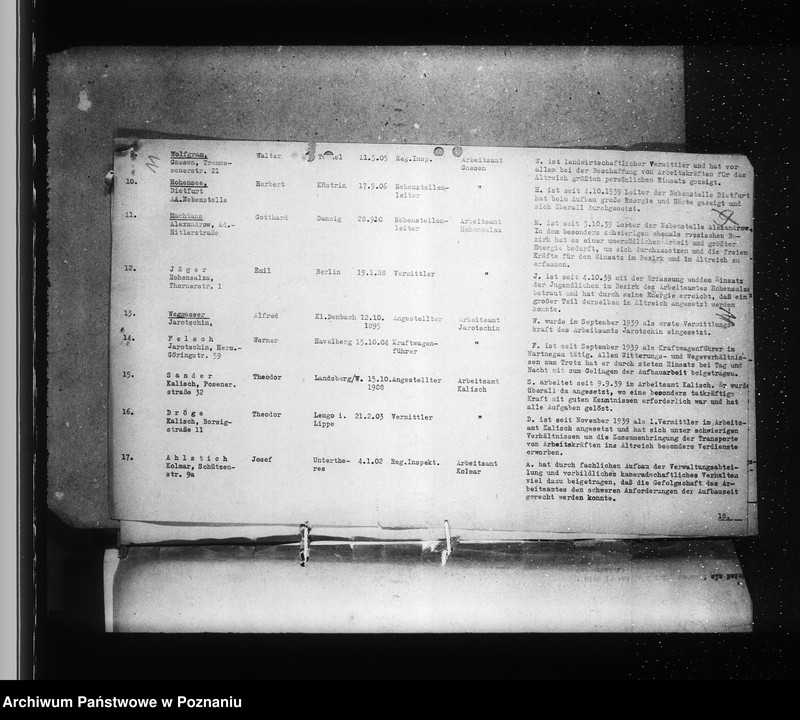 11
Wolfgram, Walter 11.5.05 Reg.Insp. Arbeitsamt W. ist landwirtschaftlicher Vermittler und hat vor
Gnesen, Gnesen allem bei der Beschaffung von Arbeitskräften für das
senerstr. 21 Altreich größten persönlichen Einsatz gezeigt.
10. Hohensee, Herbert Küstrin 17.9.06 Nebenstellen- " H. ist seit 4.10.1939 Leiter der Nebenstelle Dietfurt
Dietfurt leiter hat beim Aufbau große Energie und Härte gezeigt und
AA.Nebenstelle sich überall durchgesetzt.
11. Machtans Gotthard Danzig Nebenstellen- Arbeitsamt M. ist seit 3.10.39 Leiter der Nebenstelle Alexandrow.
Alexandrow, Ad.- leiter Hohensalza In dem besonders schwierigen ehemals russischen Be-
Hitlerstraße zirk hat es einer unermüdlichen Arbeit und größter
Energie bedurft, um sich durchzusetzen und die freien
Kräfte für den Einsatz im Bezirk und im Altreich zu
erfassen.
12. J ä g e r Emil Berlin 19.1.88 Vermittler " J. ist seit 4.10.39 mit der Erfassung undden Einsatz
Hohensalza, der Jugendlichen im Bezirk des Arbeitsamtes Hohensalza
Thornerstr. 1 betraut und hat durch seine Energie erreicht, daß ein
großer Teil derselben im Altreich angesetzt werden
konnte.
13. Weggasser Alfred Kl.Denbach 12.10. Angestellter Arbeitsamt W. wurde im September 1939 als erste Vermittlungs-
Jarotschin, 1895 Jarotschin kraft des Arbeitsamts Jarotschin eingesetzt.
14. F e l s c h Werner Havelberg 15.10.04 Kraftwagen- " F. ist seit September 1939 als Kraftwagenführer im
Jarotschin, Herm.- führer Warthegau tätig. Allen Witterungs- und Wegeverhältnis-
Göringstr. 59 sen zum Trotz hat er durch steten Einsatz bei Tag und
Nacht mit zum Gelingen der Aufbauarbeit beigetragen.
15. S a n d e r Theodor Landsberg/W. 15.10. Angestellter Arbeitsamt S. arbeitet seit 9.9.39 im Arbeitsamt Kalisch. Er wurde
Kalisch, Posener. 1908 Kalisch überall da angesetzt, wo eine besonders tatkräftige
straße 32 Kraft mit guten Kenntnissen erforderlich war und hat
alle Aufgaben gelöst.
16. D r ö g e Theodor Lemgo i. 21.2.03 Vermittler " D. ist seit November 1939 als 1.Vermittler im Arbeits-
Kalisch, Borsig- Lippe amt Kalisch angesetzt und hat sich unter schwierigen
straße 11 Verhältnissen um die Zusammenbringung der Transporte
von Arbeitskräften ins Altreich besondere Verdienste
erworben.
17. A h l s t i c h Josef Unterthe- 4.1.02 Reg.Inspekt. Arbeitsamt A. hat durch fachlichen Aufbau der Verwaltungsabtei-
Kolmar, Schützen- res Kolmar lung und vorbildliches kameradschaftliches Verhalten
str. 9a viel dazu beigetragen, daß die Gefolgschaft des Ar-
beitsamtes den schweren Anforderungen der Aufbauzeit
gerecht werden konnte.
18.
Archiwum Państwowe w Poznaniu